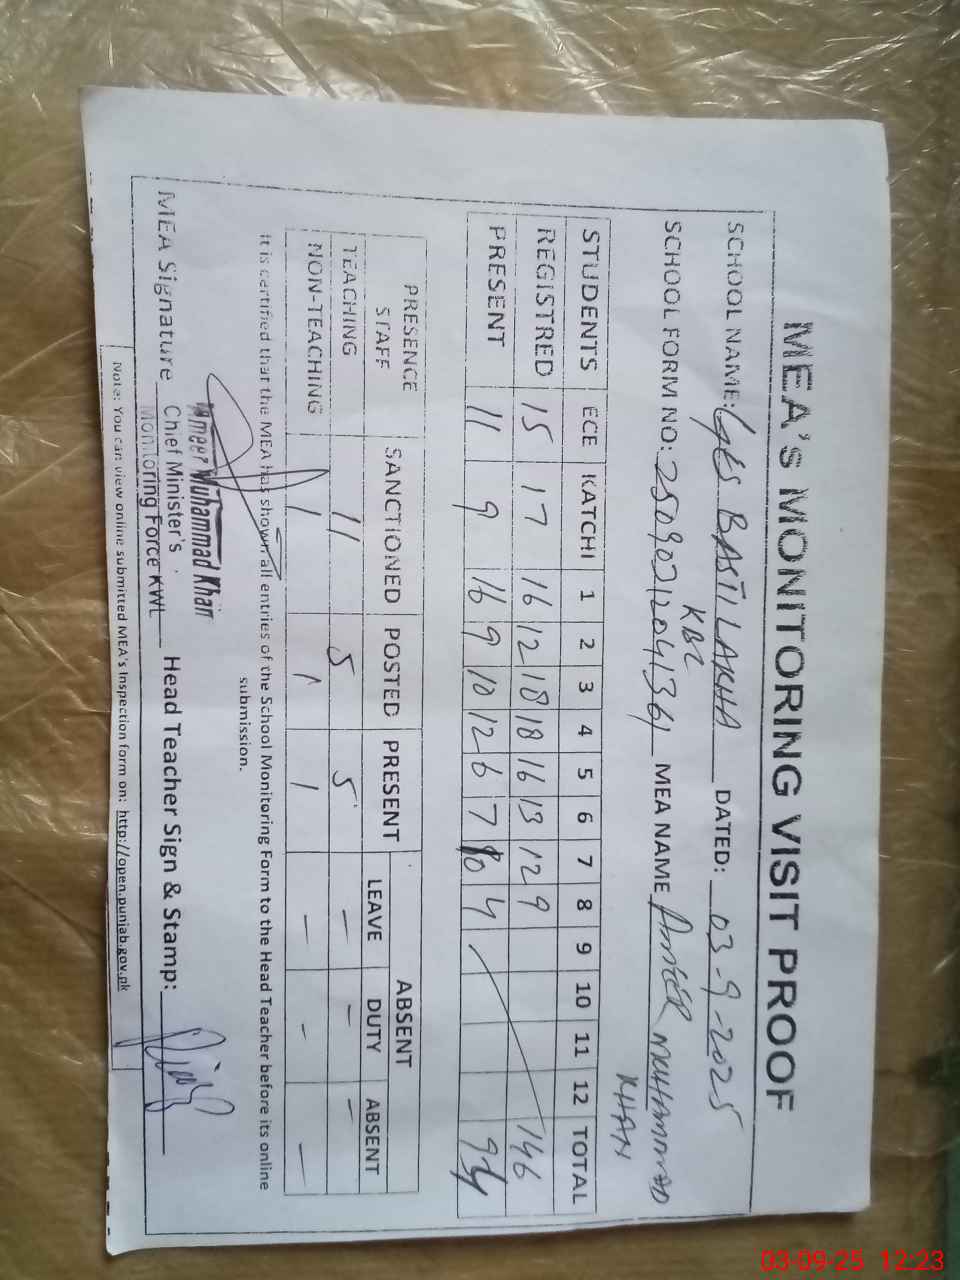 MEA'S MONITORING VISIT PROOF
SCHOOL NAME: GES BASTI LAKHA DATED: 03-9-2025
KBZ
SCHOOL FORM NO: 25090712041361 MEA NAME AMEER MUHAMMAD
KHAN
STUDENTS ECE KATCHI 1 2 3 4 5 6 7 8 9 10 11 12 TOTAL
REGISTRED 15 17 16 12 18 18 16 13 12 9 146
PRESENT 11 9 16 9 10 12 6 7 10 4 94
PRESENCE STAFF SANCTIONED POSTED PRESENT ABSENT
LEAVE DUTY ABSENT
TEACHING 11 5 5 - - -
NON-TEACHING 1 1 1 - - -
It is certified that the MEA has shown all entries of the School Monitoring Form to the Head Teacher before its online
submission.
Ameer Muhammad Khan
MEA Signature Chief Minister's Head Teacher Sign & Stamp:
Monitoring Force KWL
Note: You can view online submitted MEA's Inspection form on: http://open.punjab.gov.pk
03-09-25 12:23